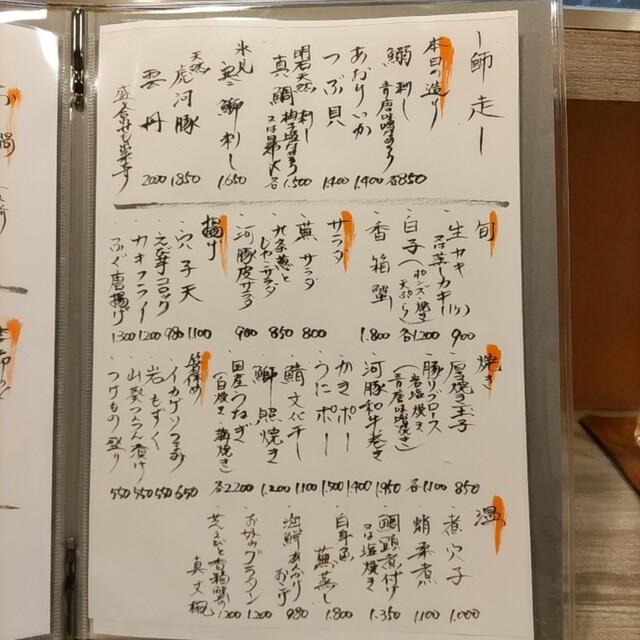 ー師走ー
本日の造り
鰯刺し
青唐味噌なめろう 各850
あおりいか 1.400
つぶ貝 1.400
明石天然 真鯛 刺し 1.500
氷見 寒鰤刺し 1.650
天然 虎河豚 1.850
雲丹 2000
盛合わせ出来ます
旬
・生カキ(1ヶ)
又は蒸しカキ 900
・白子(ポンズ・焼き 天ぷら) 各1.200
・香箱蟹 1.800
サラダ
・蕪サラダ 800
・九条葱と
じゃこサラダ 850
・河豚皮サラダ 900
揚げ
・穴子天 1100
・えび芋コロッケ 980
・カキフライ 1200
・ふぐ唐揚げ 1300
焼き
・厚焼き玉子 850
・豚リブロース
(岩塩焼き
青唐味噌焼き) 各1100
・河豚和牛巻き 1.950
・かきポー 1.400
・うにポー 1.500
・鯖文化干し 1.100
・鰤照焼き 1.200
・国産うなぎ
(白焼き・蒲焼き) 各2200
箸休め
・イカゲソつまみ 650
・岩もずく 550
・山葵つくつく漬け 550
・つけもの盛り 550
温
・煮穴子 1.000
・蛸柔煮 1.100
・鯛頭煮付け
又は塩焼き 1.350
・白身魚
蕪蒸し 1.800
・海鮮あんかけ
おこげ 980
・お好みグラタン 1.200
・芝えびと香箱蟹の
真丈椀 1200